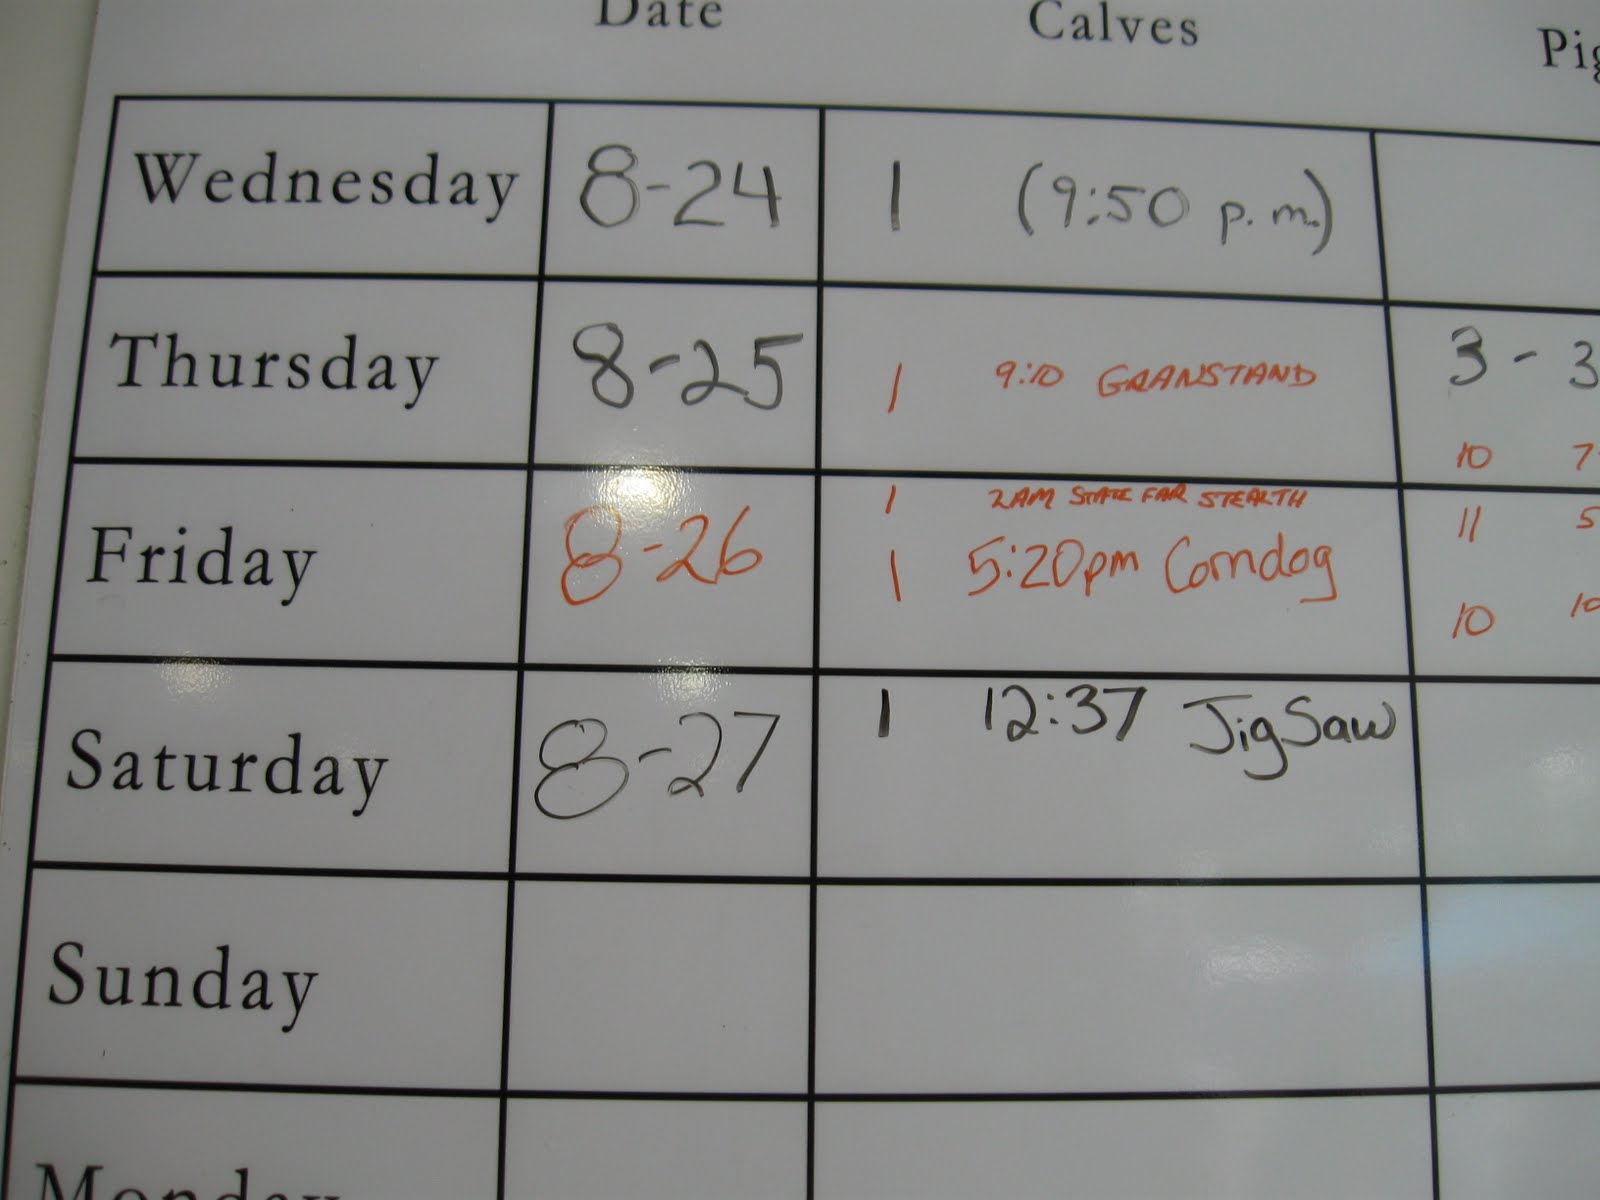 Date Calves Pig
Wednesday 8-24 1 (9:50 p.m.)
Thursday 8-25 1 9:10 GRANSTAND 3 - 3
10 7
1 2AM STATE FAIR STEALTH
Friday 8-26 1 5:20pm Corndog 11 5
10 10
Saturday 8-27 1 12:37 JigSaw
Sunday
Monday